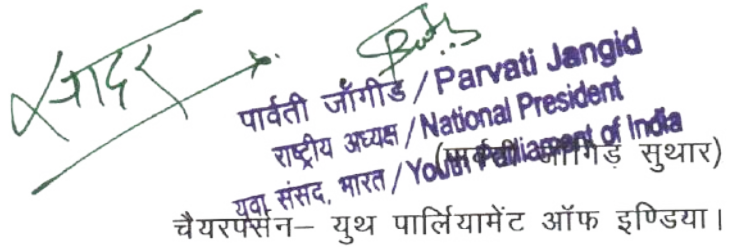 सादर
पार्वती जाँगीड / Parvati Jangid
राष्ट्रीय अध्यक्ष / National President
युवा संसद, भारत / Youth Parliament of India
(पार्वती जाँगिड़ सुथार)
चैयरपर्सन– युथ पार्लियामेंट ऑफ इण्डिया।